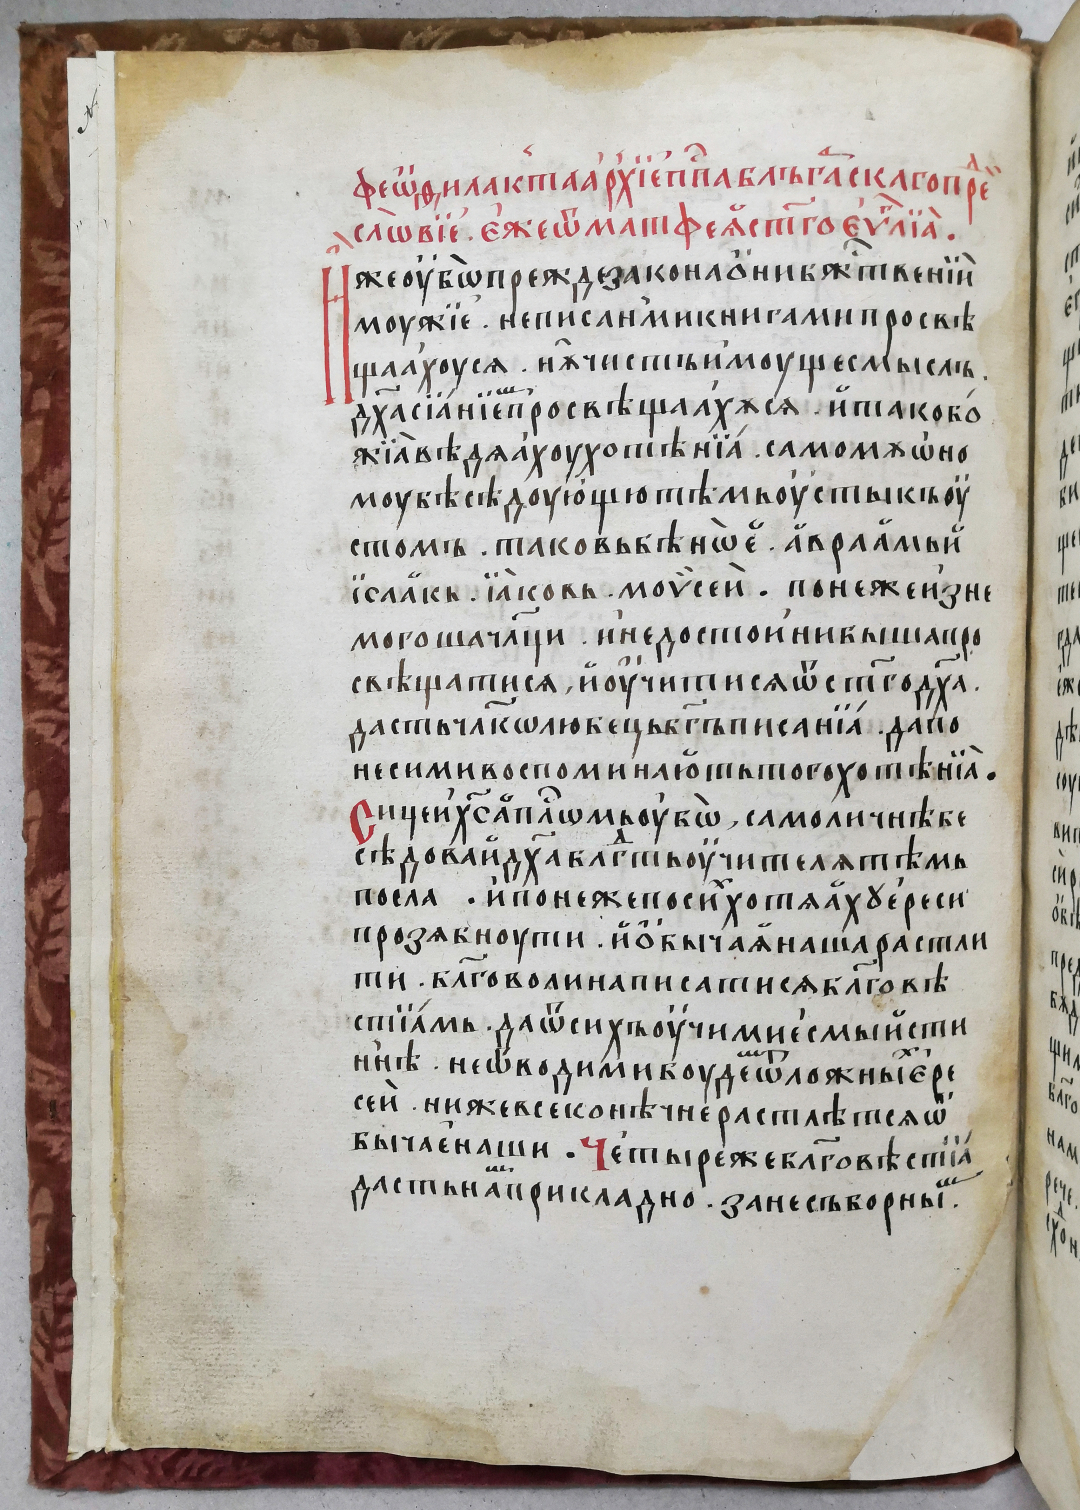 феѡ҆филакта а҆рхїе҆пⷭ҇па блъгаⷬ҇скаго преⷣ
сло́вїе. е҆́же ѿ матѳе́а ст҃го є҆ѵⷢ҇лїа.
И҆̀же оу҆́бѡ прежде закона ѻ҆́ни бжⷭ҇твенїи
моужїе. не писан́ми книгами просвѣ
щаа́хоуся. нѫ чистъ и҆моуще смыслъ.
дх҃а сїа́нїеⷨ просвѣщаа́хѫся. и҆ тако бо́
жїа вѣдѧа́хоу хотѣнїа́. самомѫ ѡ҆но
моу бѣсѣдоую҆щю тѣмь оу҆сты къ оу҆
стомъ. таковь бѣ нѡ́е. а҆враа́мь и҆
їсаа́кь. їа́ковь. мѡѵ̈сеи. понеже и҆зне
могоша чл҃ци. и҆ недостои́ни быша про
свѣщатися, и҆ оу҆чи́тися ѿ ст҃го дх҃а.
дасть чл҃колюбець бг҃ъ писанїа́. да по
не сими воспомина́ють того хотѣнїа.
Сице и҆ хс҃ а҆пⷭ҇лѡмь оу҆бѡ, самоличнѣ бе
сѣдова и҆ дх҃а блгⷣть оу҆чителя тѣмь
посла. и҆ понеже по сиⷯ хотя́ахꙋ є҆реси
прозябноути. и҆ ѻ҆бычаа̀ наша растли
ти. блг҃оволи написатися блг҃овѣ
стїа́мь. да ѿ сихъ оу҆чими е҆смы и҆сти
ннѣ. не ѿводими боудеⷨ ѿ ложныⷯ є҆ре
сеи́. ниже всеконѣчне растлѣтся ѡ҆
бычае́ наши. Че́тыре же блг҃овѣстїа́
дасть наⷨ прикладно. зане съборныⷨ.